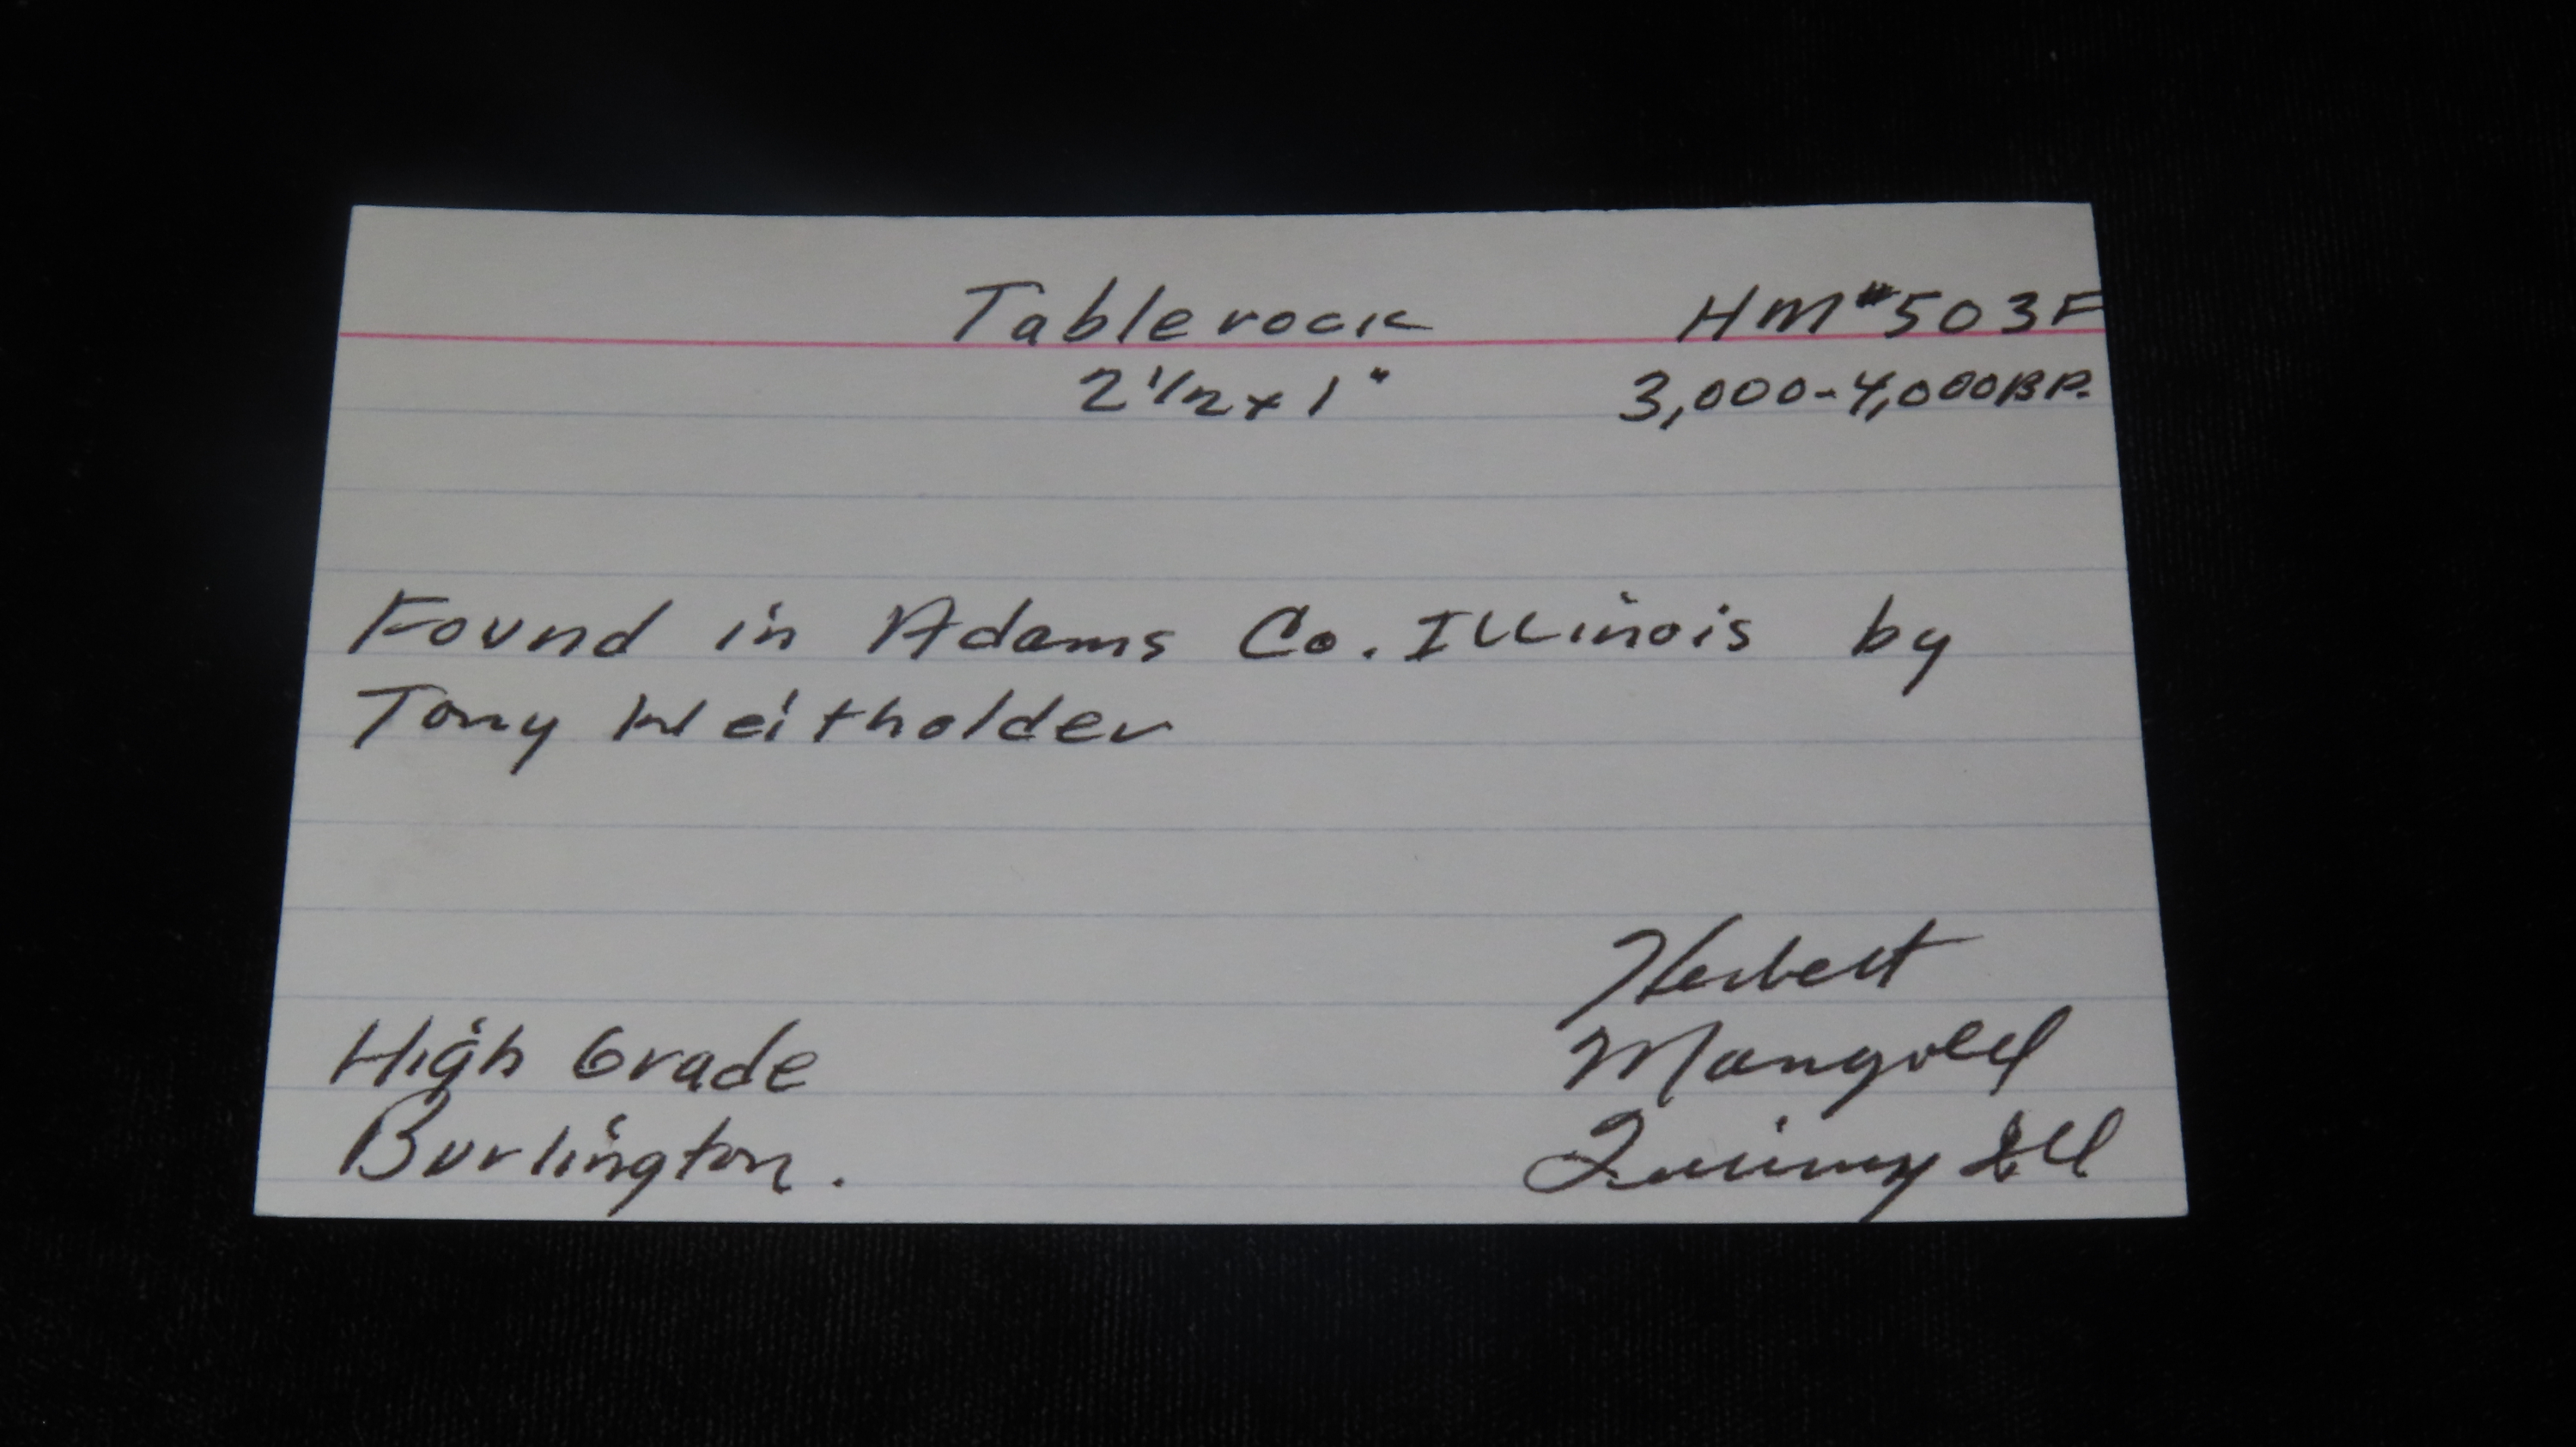 Tablerock HM#503F
2 1/2 x 1" 3,000-4,000 BP.
Found in Adams Co. Illinois by
Tony Weitholder
Herbert
High Grade Mangold
Burlington. Quincy Ill